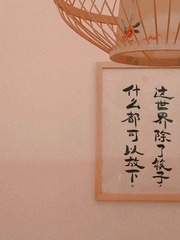 这世界除了筷子，
什么都可以放下。